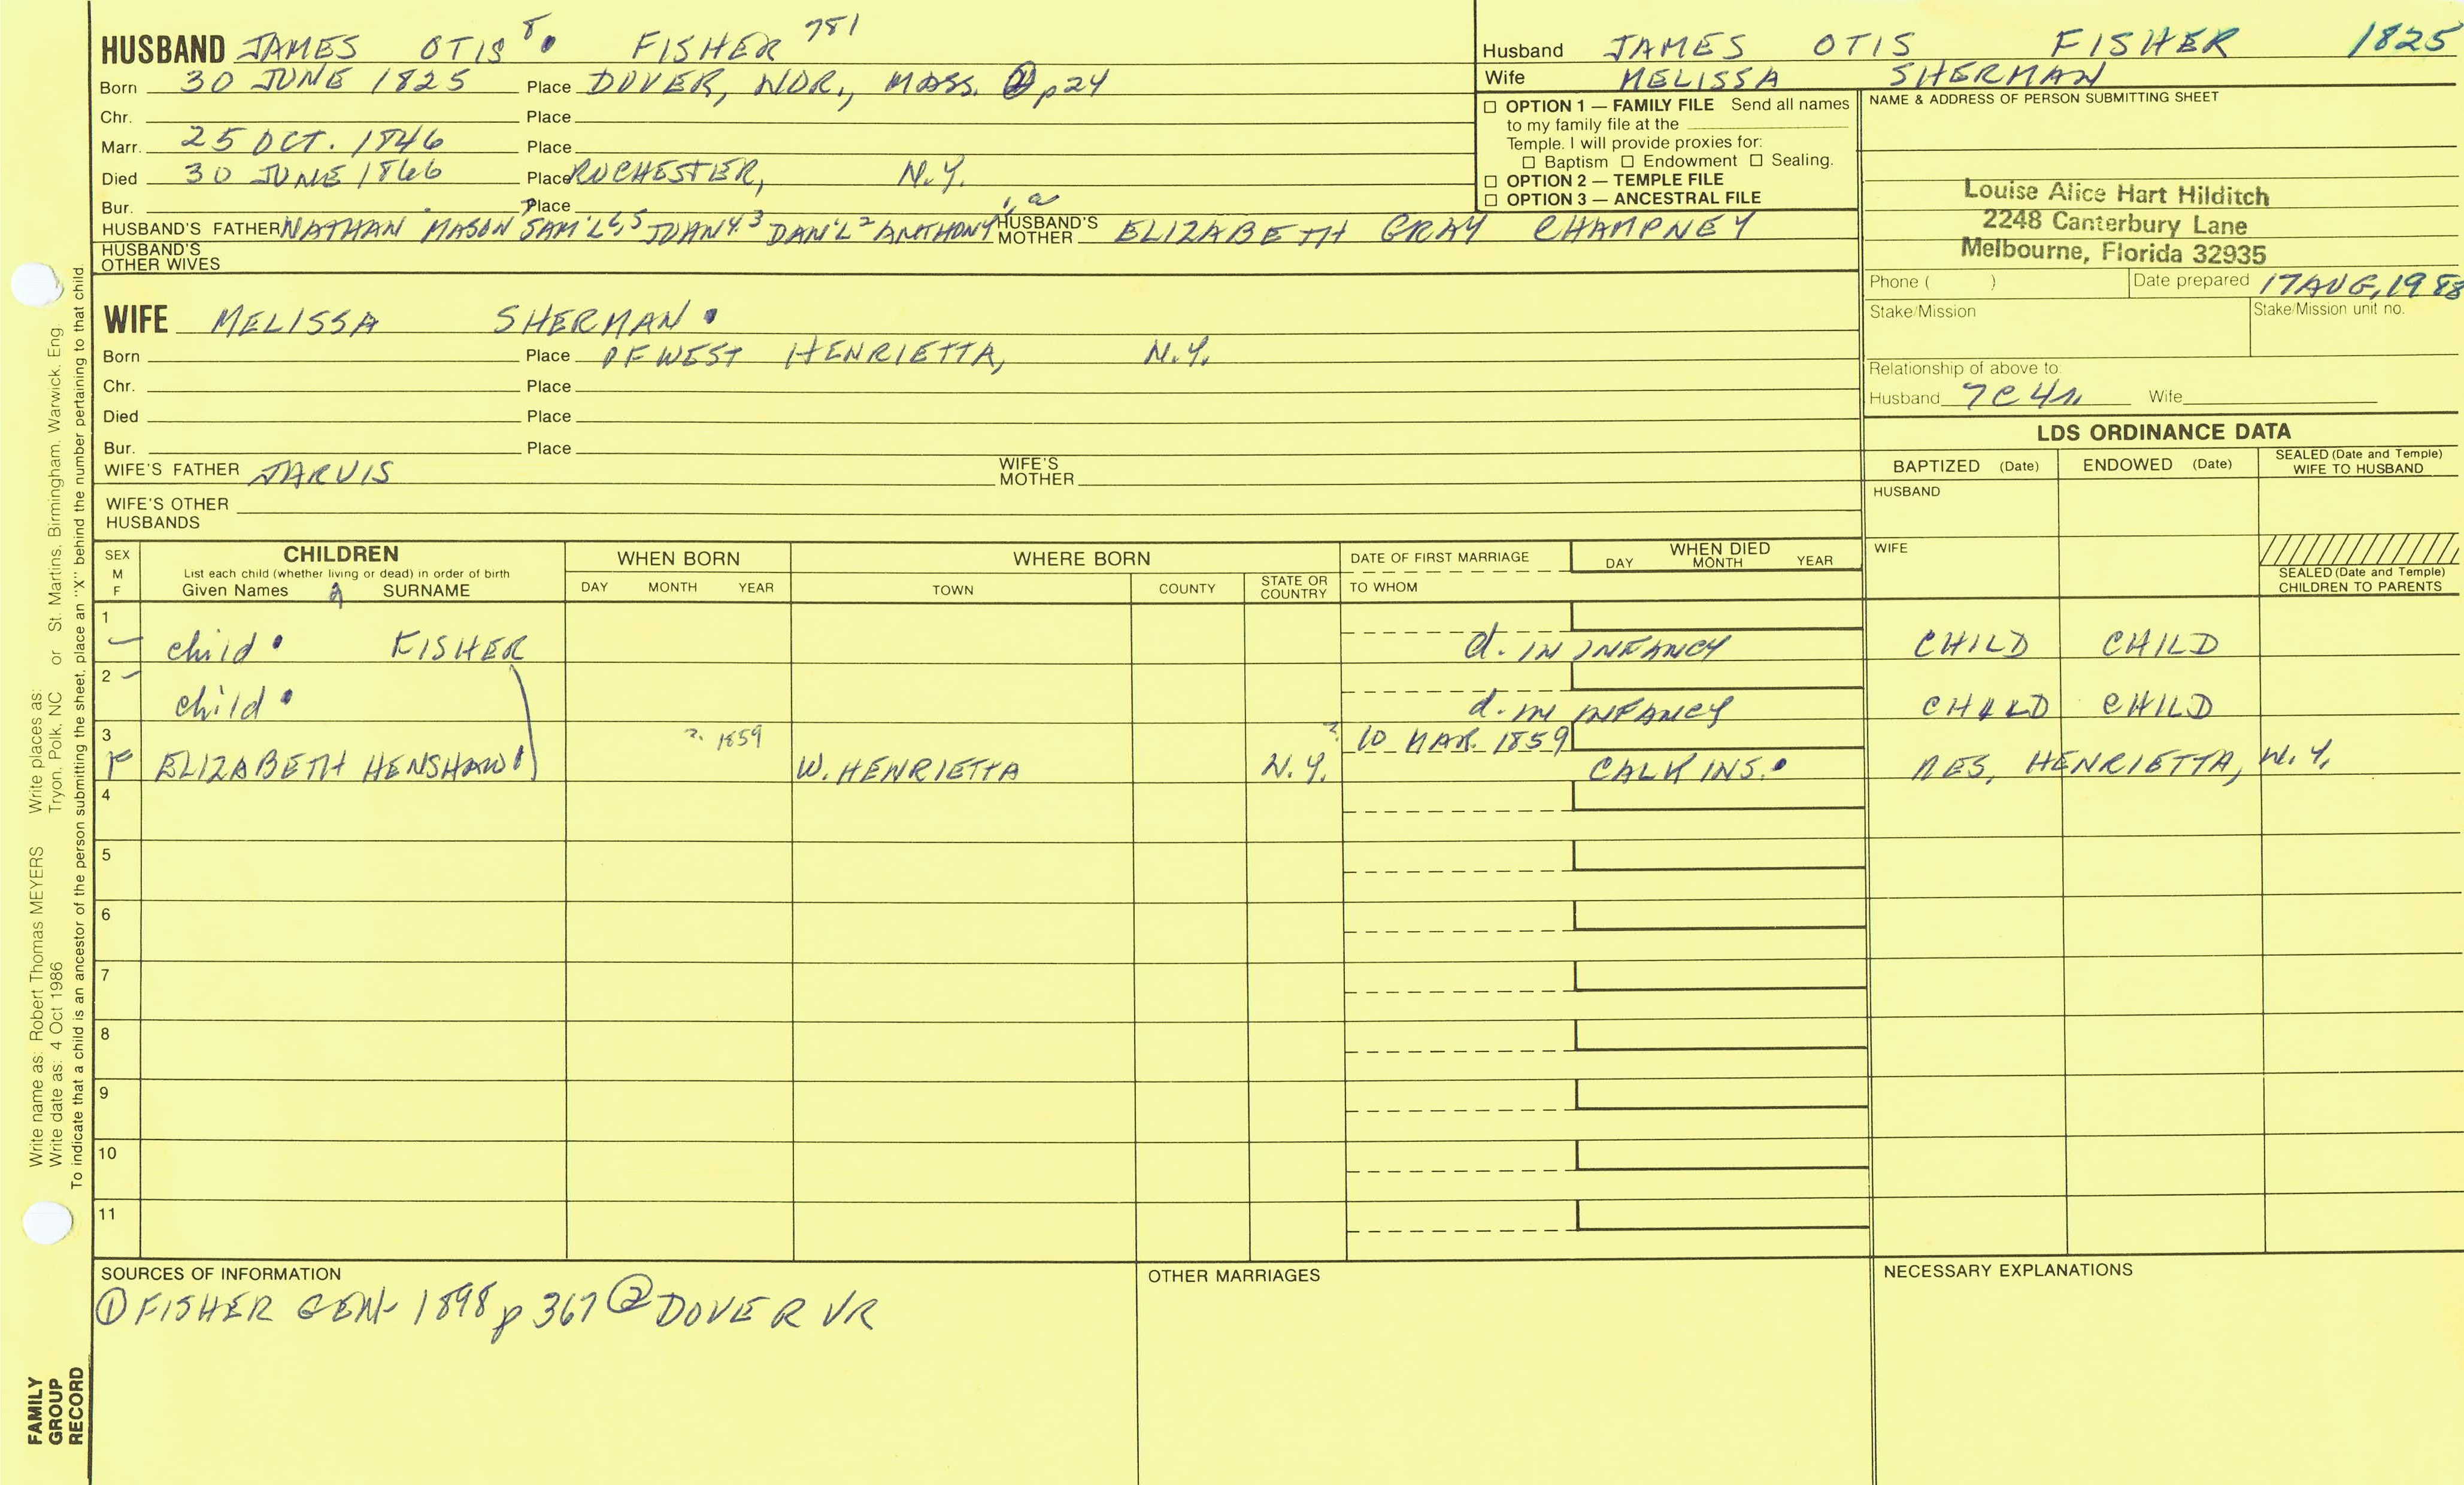 HUSBAND JAMES OTIS 8 FISHER 781
Born 30 JUNE 1825 Place DOVER, NOR., MASS. ② p24
Chr. Place
Marr. 25 OCT. 1846 Place
Died 30 JUNE 1866 Place ROCHESTER, N.Y.
Bur. Place
HUSBAND'S FATHER NATHAN 7 MASON SAM'L 6,5 JOHN 4,3 DAN'L 2 ANTHONY 1,a HUSBAND'S MOTHER ELIZABETH GRAY CHAMPNEY
HUSBAND'S OTHER WIVES
WIFE MELISSA SHERMAN
Born Place OF WEST HENRIETTA, N.Y.
Chr. Place
Died Place
Bur. Place
WIFE'S FATHER JARVIS WIFE'S MOTHER
WIFE'S OTHER HUSBANDS
Husband JAMES OTIS FISHER 1825
Wife MELISSA SHERMAN
☐ OPTION 1 — FAMILY FILE Send all names
to my family file at the
Temple. I will provide proxies for:
☐ Baptism ☐ Endowment ☐ Sealing.
☐ OPTION 2 — TEMPLE FILE
☐ OPTION 3 — ANCESTRAL FILE
NAME & ADDRESS OF PERSON SUBMITTING SHEET
Louise Alice Hart Hilditch
2248 Canterbury Lane
Melbourne, Florida 32935
Phone ( ) Date prepared 17 AUG, 1988
Stake/Mission Stake/Mission unit no.
Relationship of above to:
Husband 7C4r. Wife
LDS ORDINANCE DATA
BAPTIZED (Date) ENDOWED (Date) SEALED (Date and Temple) WIFE TO HUSBAND
HUSBAND
WIFE
SEALED (Date and Temple) CHILDREN TO PARENTS
SEX M F
CHILDREN
List each child (whether living or dead) in order of birth
Given Names SURNAME
WHEN BORN
DAY MONTH YEAR
WHERE BORN
TOWN COUNTY STATE OR COUNTRY
DATE OF FIRST MARRIAGE
TO WHOM
WHEN DIED
DAY MONTH YEAR
1 – child FISHER d. IN INFANCY CHILD CHILD
2 – child d. IN INFANCY CHILD CHILD
3 ? 1859 ? 10 MAR. 1859
F ELIZABETH HENSHAW W. HENRIETTA N.Y. CALKINS. RES, HENRIETTA, N.Y.
4
5
6
7
8
9
10
11
SOURCES OF INFORMATION
① FISHER GEN. 1898 p 367 ② DOVER VR
OTHER MARRIAGES
NECESSARY EXPLANATIONS
Write name as: Robert Thomas MEYERS Write places as: Tryon, Polk, NC or St. Martins, Birmingham, Warwick, Eng.
Write date as: 4 Oct 1986
To indicate that a child is an ancestor of the person submitting the sheet, place an "X" behind the number pertaining to that child.
FAMILY
GROUP
RECORD